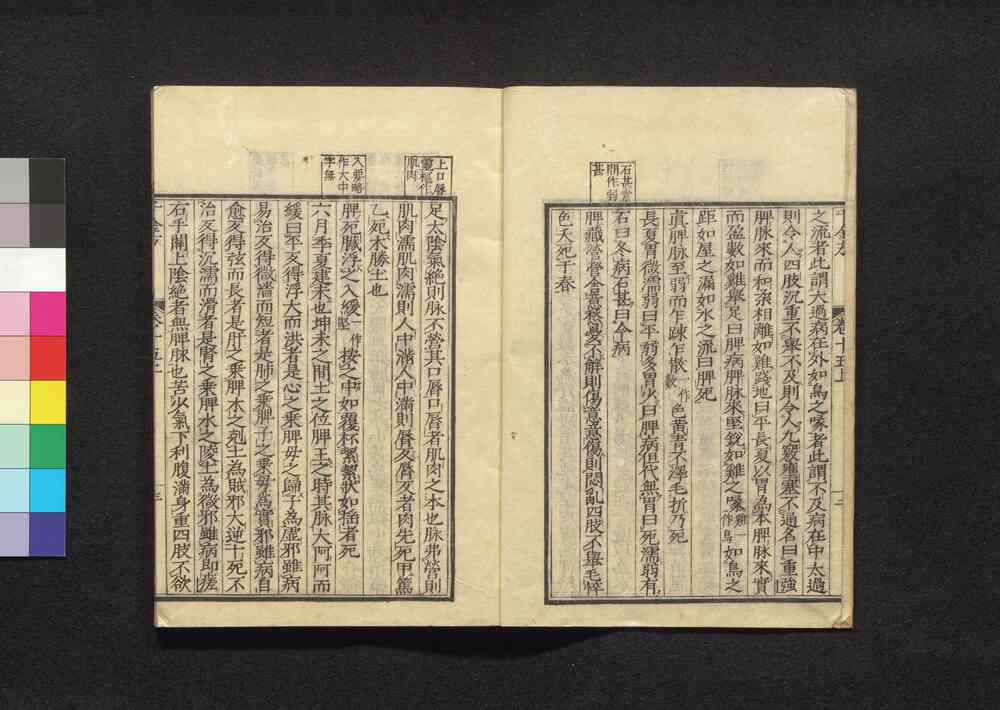 之流者此謂太過病在外如鳥之喙者此謂不及病在中太過
則令人四肢沉重不舉不及則令人九竅壅塞不通名曰重強
脾脈來而和柔相離如雞踐地曰平長夏以胃為本脾脈來實
而盈數如雞舉足曰脾病脾脈來堅銳如雞之喙雞一作鳥如鳥之
距如屋之漏如水之流曰脾死
真脾脈至弱而乍踈乍散一作數色黃青不澤毛折乃死
長夏胃微濡弱曰平弱多胃少曰脾病但代無胃曰死濡弱有
石曰冬病石甚曰今病
脾藏營營舍意愁憂不解則傷意意傷則悶亂四肢不舉毛悴
色夭死于春
足太陰氣絕則脉不營其口唇口唇者肌肉之本也脉弗營則
肌肉濡肌肉濡則人中滿人中滿則唇反唇反者肉先死甲篤
乙死木勝土也
脾死臟浮之大緩一作堅按之中如覆杯絜絜狀如揺者死
六月季夏建未也坤未之間土之位脾王之時其脉大阿阿而
緩曰平反得浮大而洪者是心之乗脾母之歸子為虛邪雖病
易治反得微濇而短者是肺之乗脾子之乗母為實邪雖病自
愈反得弦而長者是肝之乗脾木之剋土為賊邪大逆十死不
治反得沉濡而滑者是腎之乗脾水之陵土為微邪雖病即瘥
右手關上陰絕者無脾脉也苦少氣下利腹滿身重四肢不欲